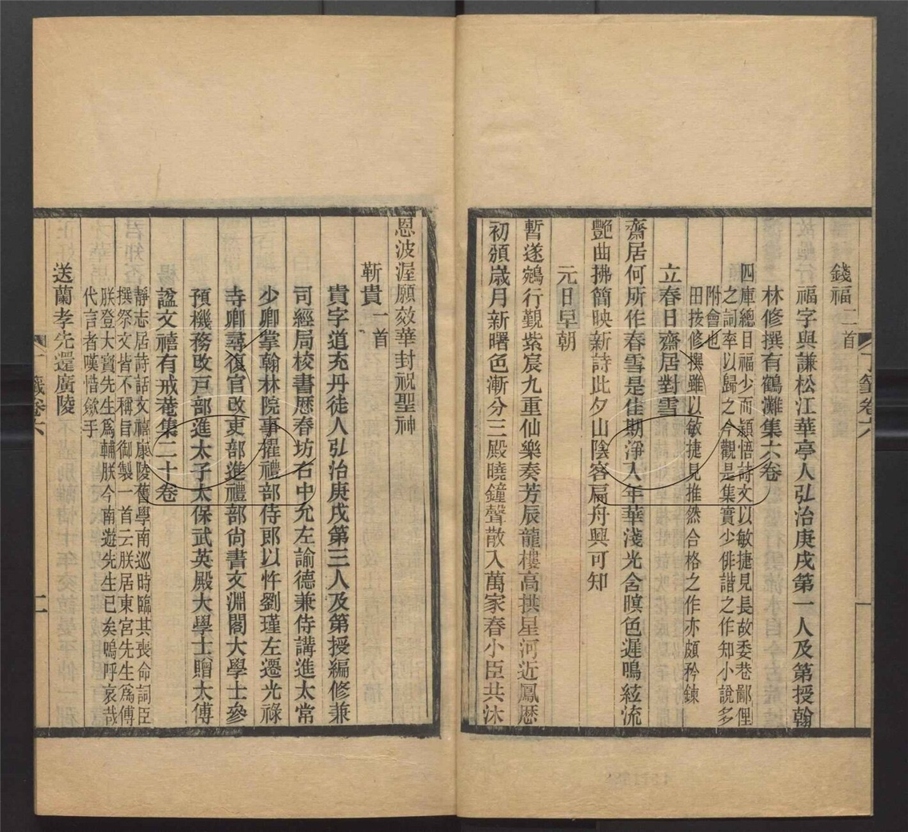 錢福二首
福字與謙松江華亭人弘治庚戌第一人及第授翰
林修撰有鶴灘集六卷
四庫總目福少而穎悟詩文以敏捷見長故委巷鄙俚
之詞率以歸之今觀是集實少俳諧之作知小說多
附會也
田按修撰雖以敏捷見推然合格之作亦頗矜鍊
立春日齋居對雪
齋居何所作春雪是佳期淨入年華淺光含暝色遲鳴絃流
艷曲拂簡映新詩此夕山陰容扁舟興可知
元日早朝
暫遂鵷行覲紫宸九重仙樂奏芳辰龍樓高拱星河近鳳歷
初頒歲月新曙色漸分三殿曉鐘聲散入萬家春小臣共沐
丁籤卷六
一
恩波渥願效華封祝聖神
靳貴一首
貴字道充丹徒人弘治庚戌第三人及第授編修兼
司經局校書歷春坊右中允左諭德兼侍講進太常
少卿掌翰林院事擢禮部侍郎以忤劉瑾左遷光祿
寺卿尋復官改吏部進禮部尚書文淵閣大學士參
預機務改戶部進太子太保武英殿大學士贈太傅
諡文禧有戒菴集二十卷
靜志居詩話文禧康陵舊學南巡時臨其喪命詞臣
撰祭文皆不稱旨御製一首云朕居東宮先生為傅
朕登大寶先生為輔朕今南遊先生已矣嗚呼哀哉
代言者嘆惜歛手
送蘭孝先還廣陵
丁籤卷六
二